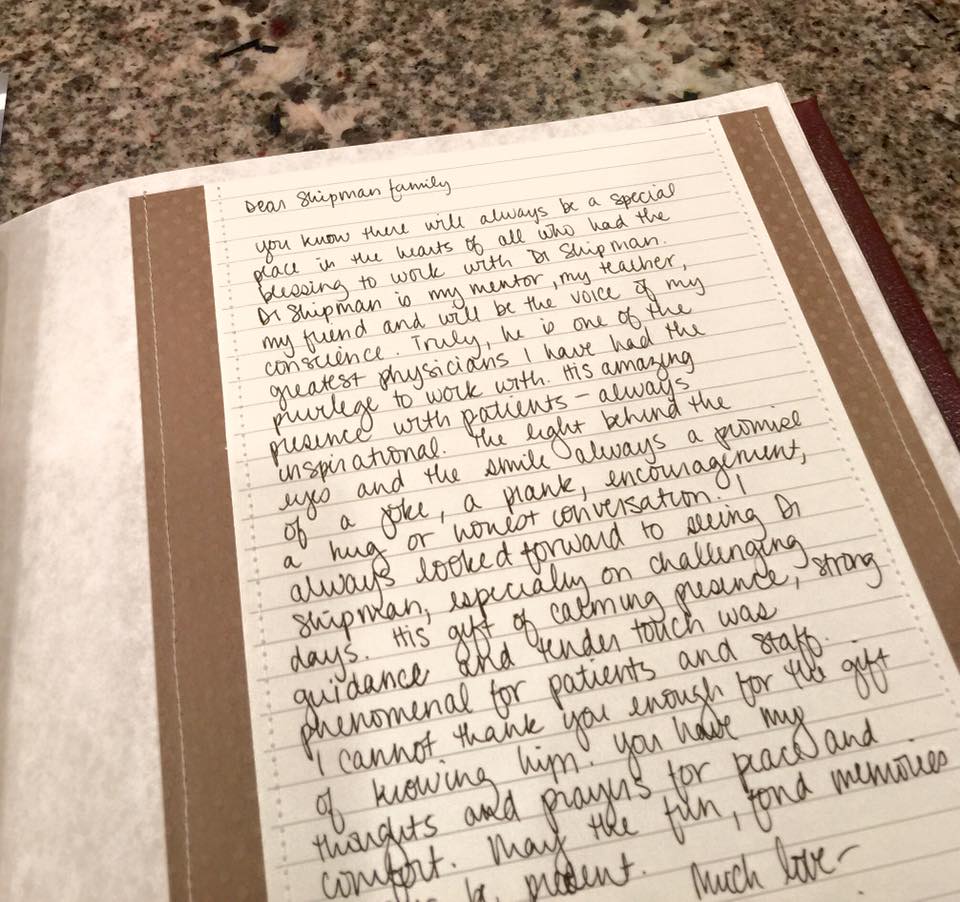 Dear Shipman family
you know there will always be a special
place in the hearts of all who had the
blessing to work with Dr Shipman.
Dr Shipman is my mentor, my teacher,
my friend and will be the voice of my
conscience. Truly, he is one of the
greatest physicians I have had the
privilege to work with. His amazing
presence with patients - always
inspirational. The light behind the
eyes and the smile always a promise
of a joke, a prank, encouragement,
a hug or honest conversation. I
always looked forward to seeing Dr
Shipman, especially on challenging
days. His gift of calming presence, strong
guidance and tender touch was
phenomenal for patients and staff.
I cannot thank you enough for the gift
of knowing him. You have my
thoughts and prayers for peace and
comfort. May the fun, fond memories
be present. Much love -